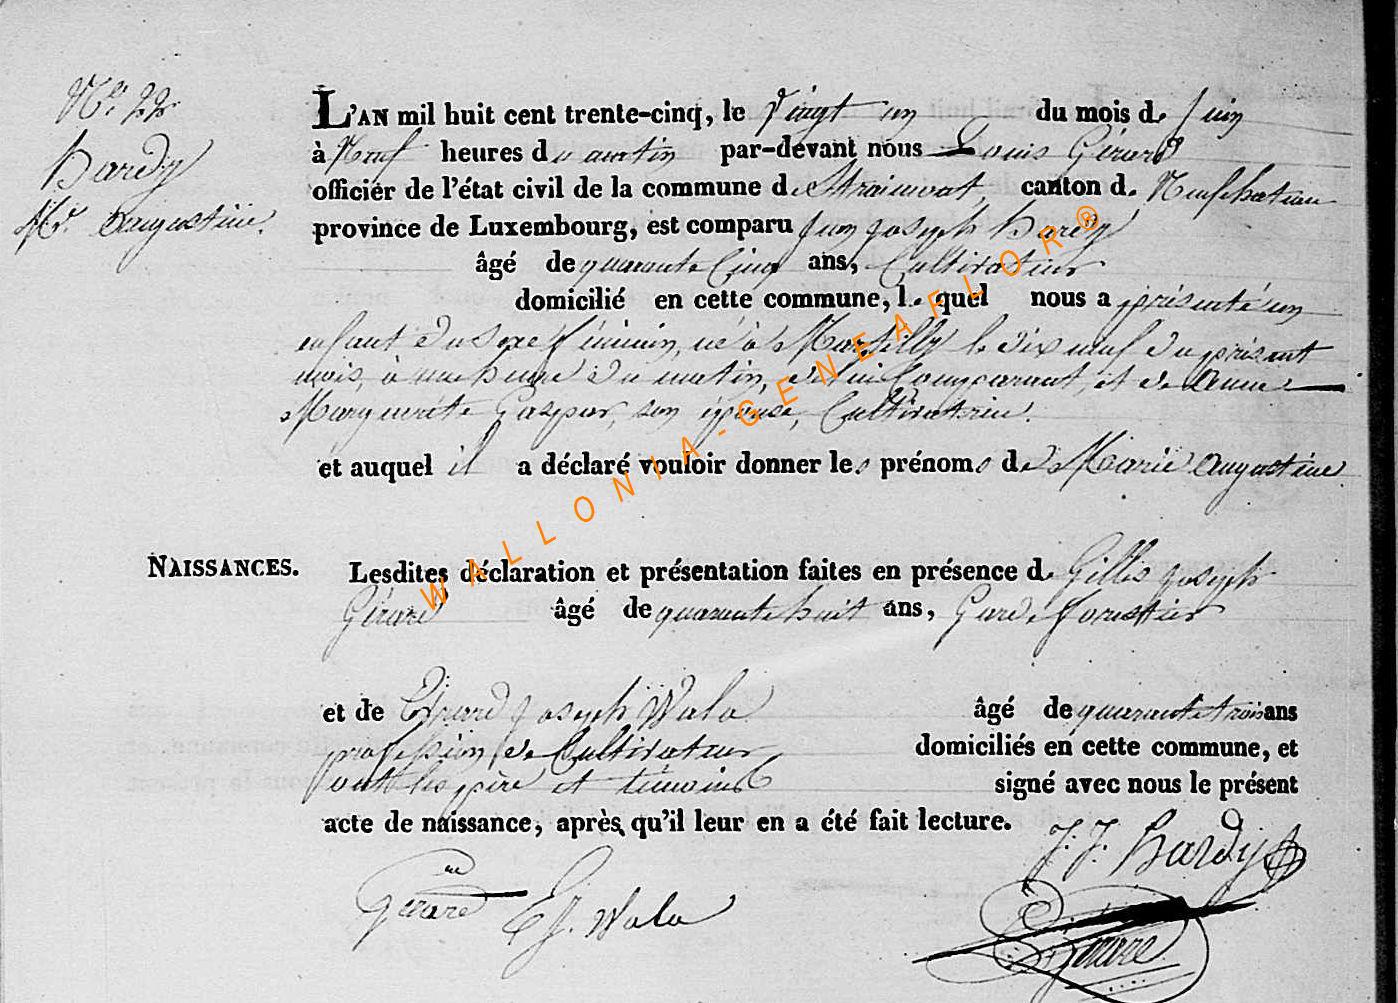 N° 22
Hardy
Mie Augustine.
L'AN mil huit cent trente-cinq, le vingt un du mois de Juin
à Neuf heures du matin par-devant nous Louis Gérard
officier de l'état civil de la commune de Straimont, canton de Neufchateau
province de Luxembourg, est comparu Jean Joseph Hardy
âgé de quarante Cinq ans, Cultivateur
domicilié en cette commune, lequel nous a présenté un
enfant du sexe féminin, né à Martilly le dix neuf du présent
mois, à une heure du matin, de lui Comparant, et de Anne
Marguerite Gaspar, son épouse, Cultivatrice.
et auquel il a déclaré vouloir donner les prénoms de Marie Augustine.
NAISSANCES.
Lesdites déclaration et présentation faites en présence de Gillis Joseph
Gérard âgé de quarante huit ans, Garde forestier
et de Joseph Wala âgé de quarante trois ans
profession de Cultivateur domiciliés en cette commune, et
ont les père et témoins signé avec nous le présent
acte de naissance, après qu'il leur en a été fait lecture.
J. J. Hardy
Gérard
E J. Wala
Gérard
WALLONIA-GENEAFLOR®